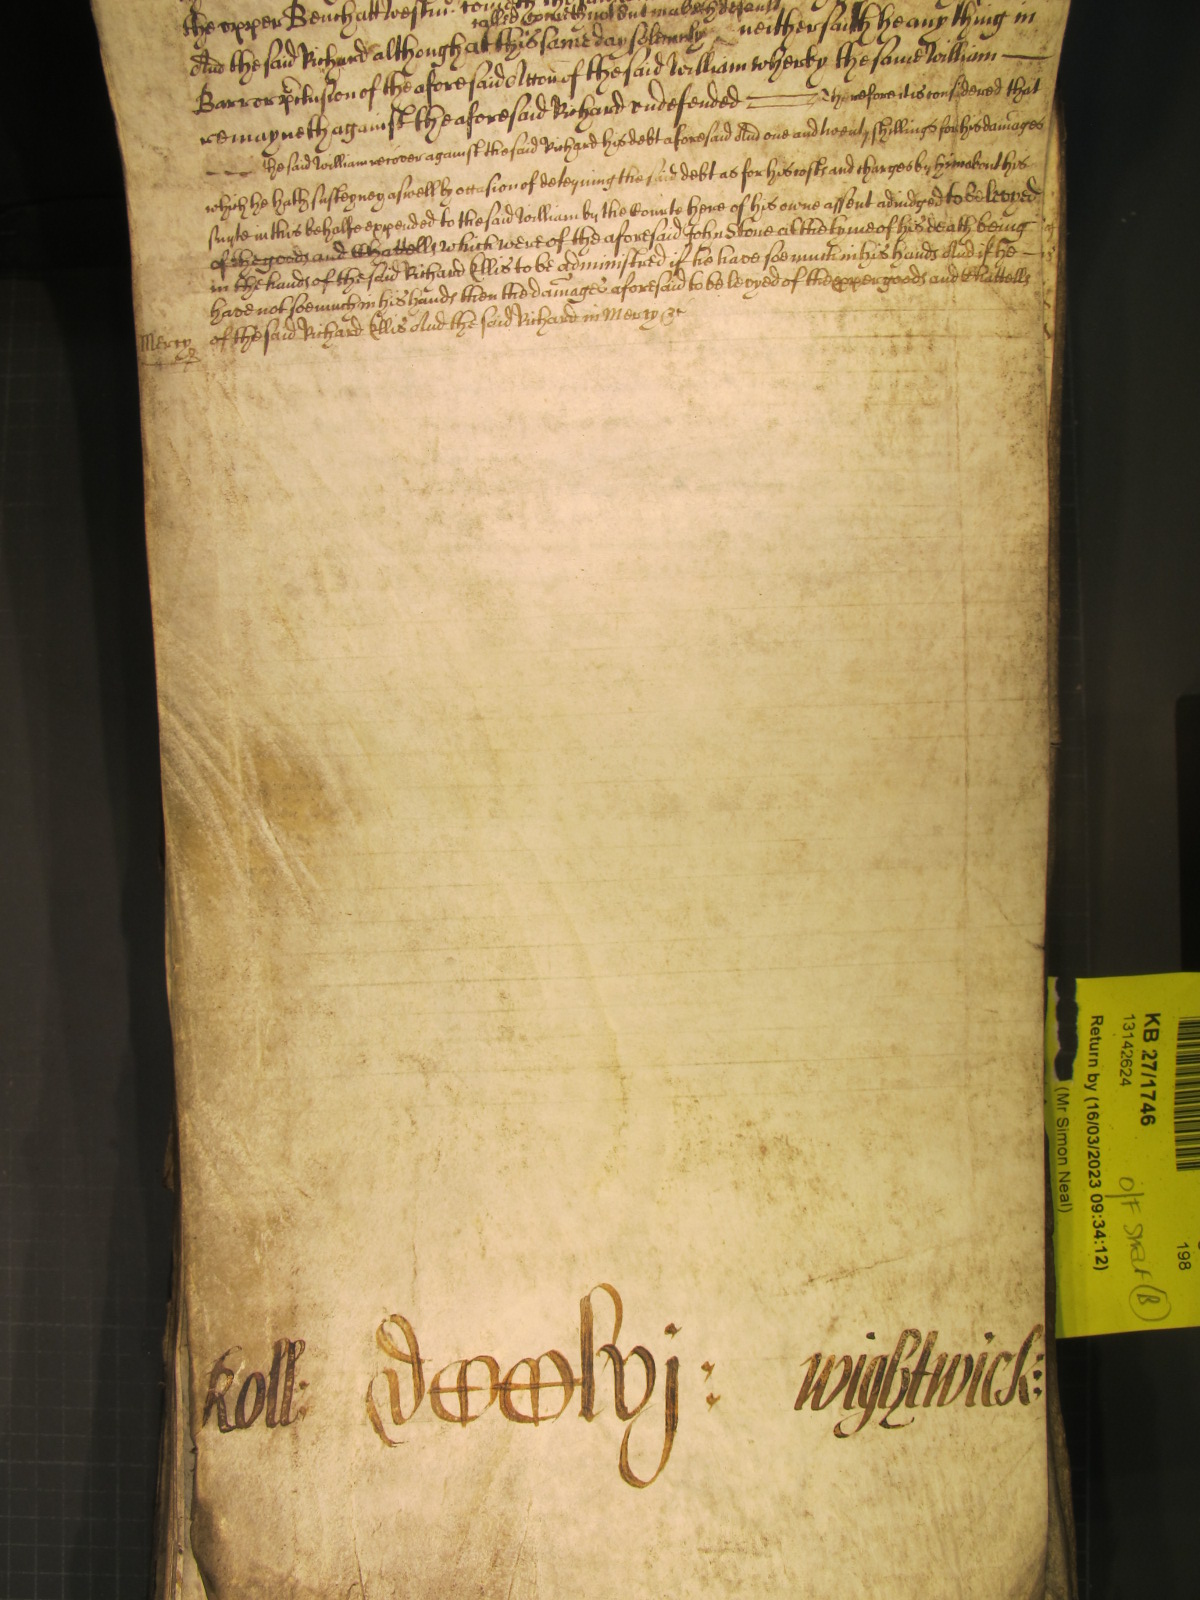 the upper Bench att Westm̃
called cometh not but maketh default
And the said Richard although at this same day solemnly neither saith he any thing in
Barr or p̱clusion of the aforesaid Accõn of the said William whereby the same William
remayneth against the aforesaid Richard undefended Therefore it is considered that
the said William recover against the said Richard his debt aforesaid And one and twenty shillings for his damages
which he hath susteyned aswell by occasion of deteyning the said debt as for his costs and charges by him about his
suyte in this behalfe expended to the said William by the Courte here of his owne assent adiudged to be levyed
of the goods and Chattells which were of the aforesaid John Stone at the tyme of his death being
in the hands of the said Richard Ellis to be administred if he have soe much in his hands And if he
have not soe much in his hands then the damages aforesaid to be levyed of the proper goods and Chattells
of the said Richard Ellis And the said Richard in Mercy &c
Mercy
Roll:
wightwick:
KB 27/1746
13142624
Return by (16/03/2023 09:34:12)
(Mr Simon Neal)
198
O/F
(B)